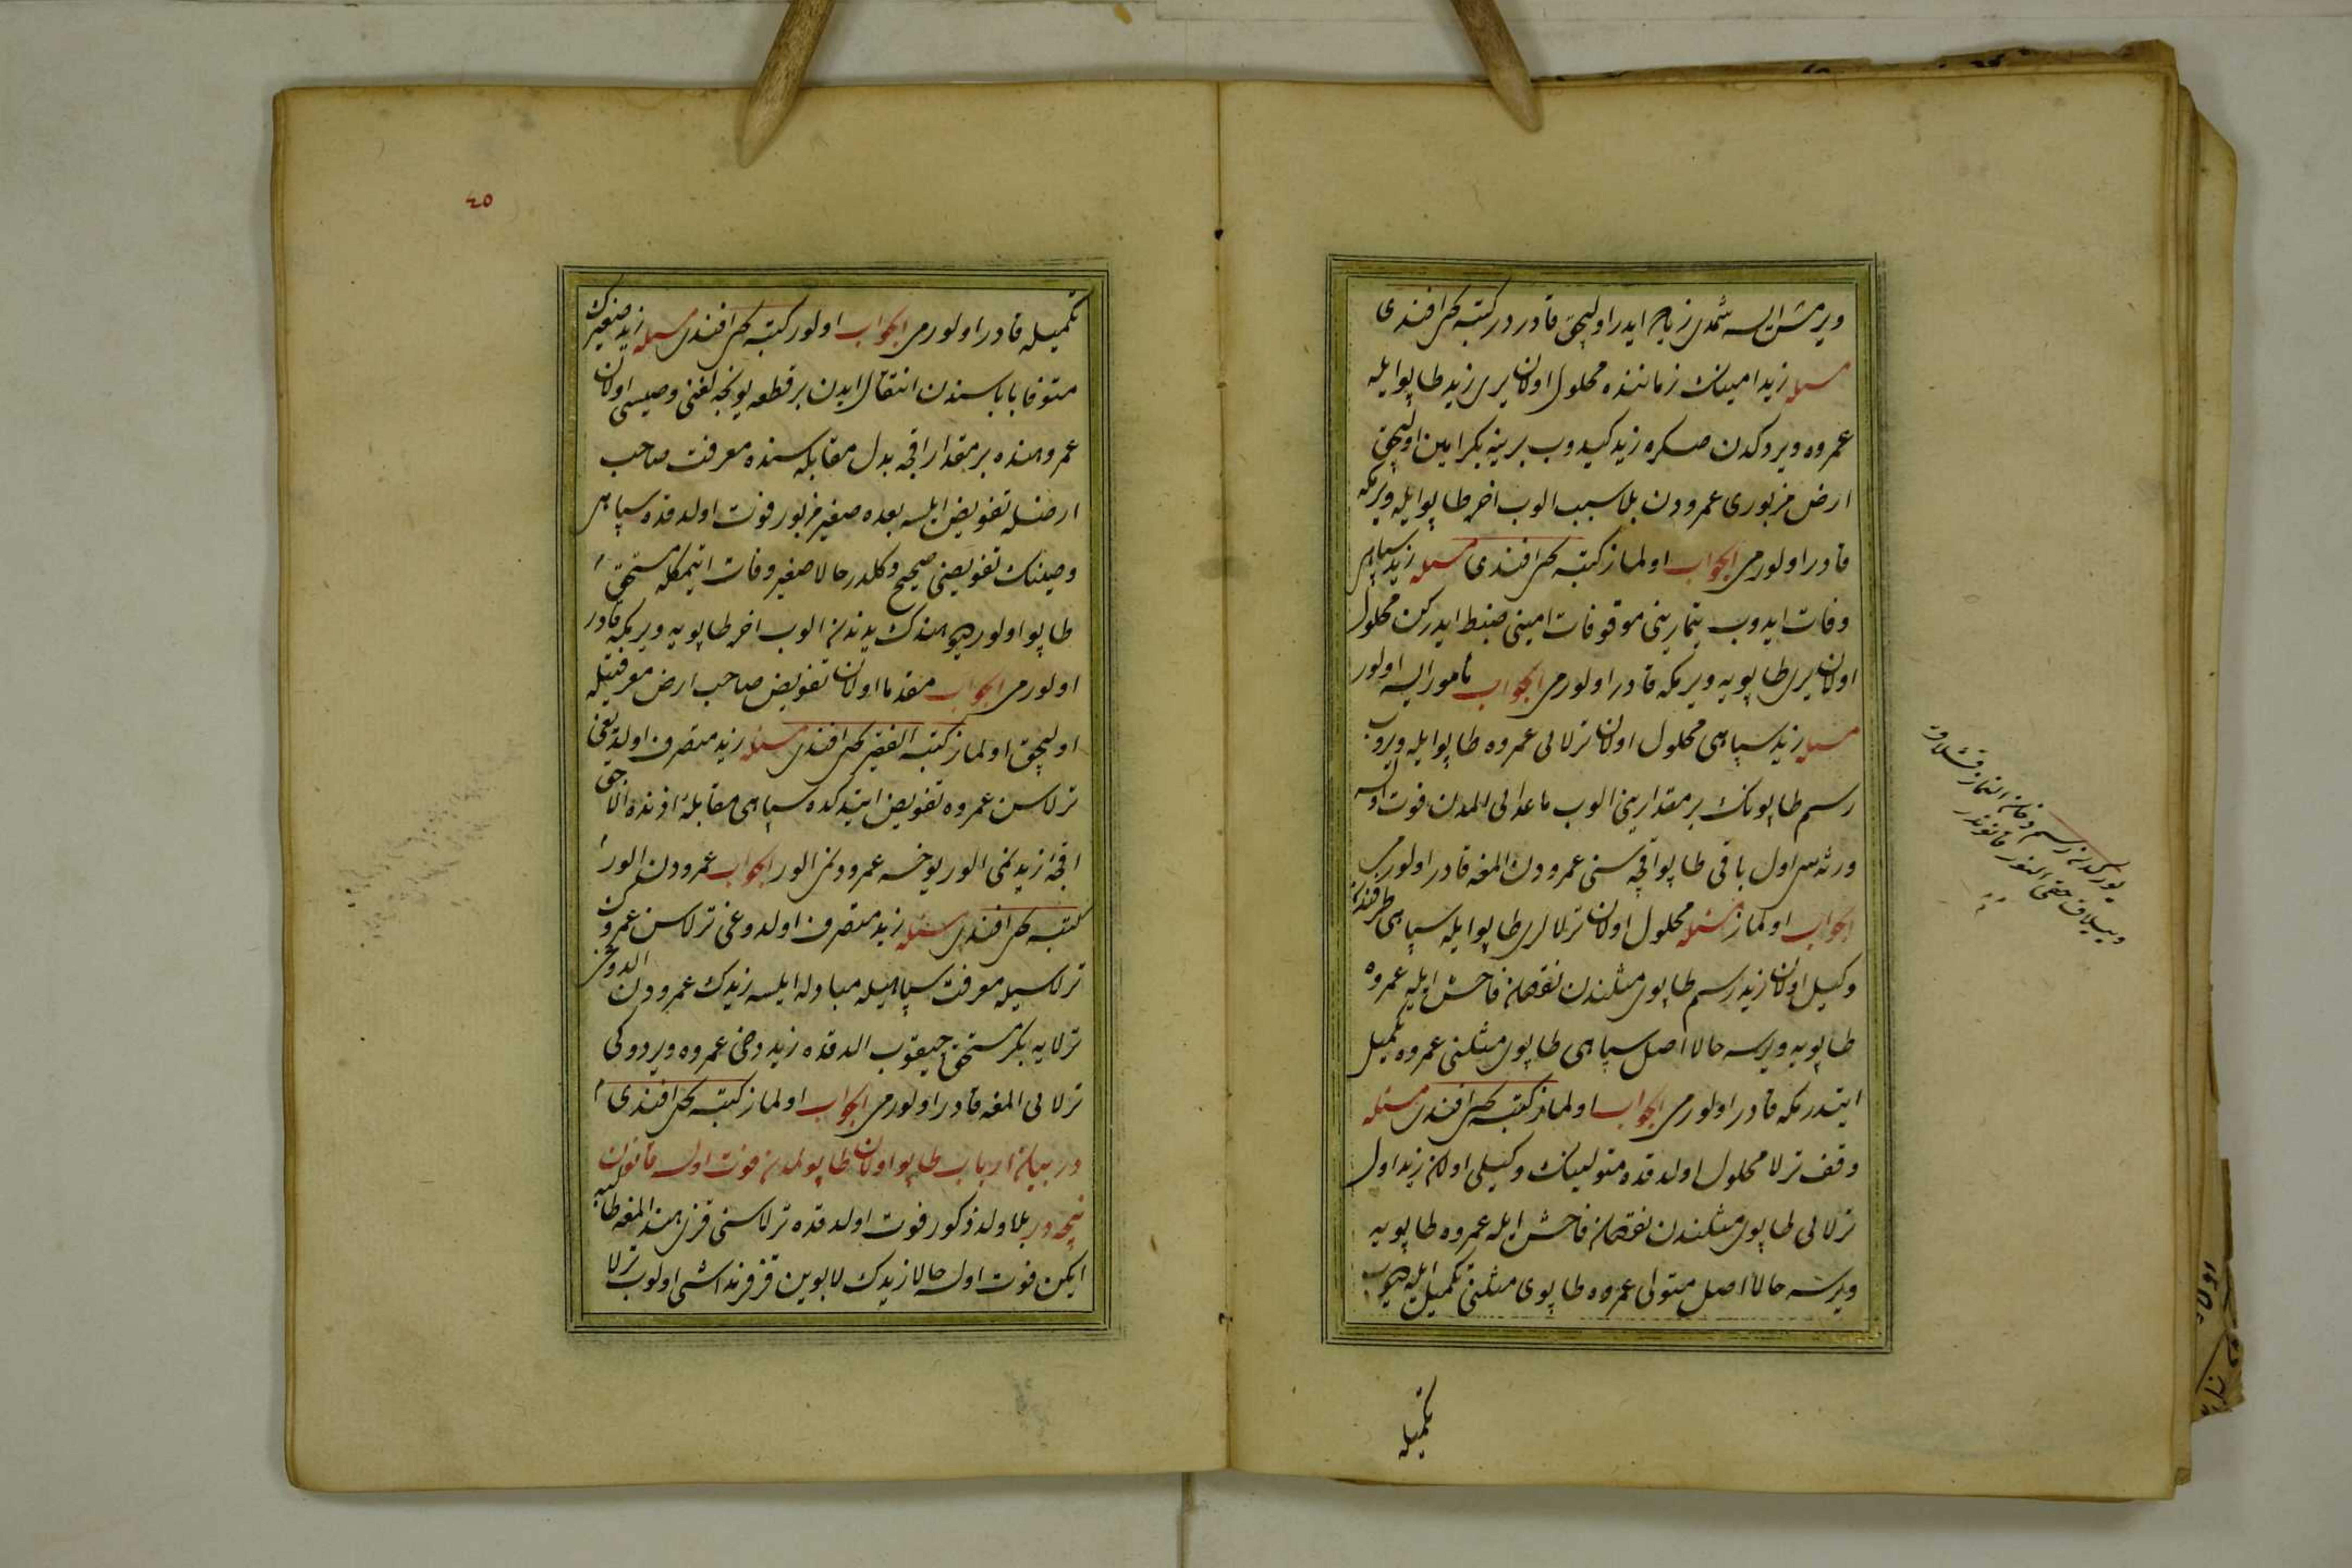 ويرمش ايسه شمدى زيد اجر ايدر اوليجق قادردر كتبه محمد افندى
مسئله زيد امينك زماننده محلول اولان يرى زيد طاپو ايله
عمروه ويردكدن صكره زيد كيدوب يرينه بكر امين اوليجق
ارض مزبورى عمرودن بلا سبب الوب اخره طاپو ايله ويرمكه
قادر اولورمى الجواب اولماز كتبه محمد افندى مسئله زيد سپاهى
وفات ايدوب تيمارينى موقوفات امينى ضبط ايدركن محلول
اولان يرى طاپويه ويرمكه قادر اولورمى الجواب مأمور ايسه اولور
مسئله زيد سپاهى محلول اولان ترلايى عمروه طاپو ايله ويروب
رسم طاپونك بر مقدارينى الوب ماعداىى المدن فوت اولسه
ورثه سى اول باقى طاپو اقچه سنى عمرودن المغه قادر اولورمى
الجواب اولماز مسئله محلول اولان ترلالرى طاپو ايله سپاهى طرفندن
وكيل اولان زيد رسم طاپوى مثلندن نقصان فاحش ايله عمروه
طاپويه ويرسه حالا اصل سپاهى طاپوى مثلنى عمروه تكميل
ايتدرمكه قادر اولورمى الجواب اولماز كتبه محمد افندى مسئله
وقف ترلا محلول اولدقده متولينك وكيلى اولان زيد اول
ترلايى طاپوى مثلندن نقصان فاحش ايله عمروه طاپويه
ويرسه حالا اصل متولى عمروه طاپوى مثلنى تكميل ايله ديوب
تكميله
رسم دخان النماز قشلاق
ويايلاق حقى النور قانوندر
٤٥
تكميله قادر اولورمى الجواب اولور كتبه محمد افندى مسئله زيد صغيرك
متوفا باباسندن انتقال ايدن بر قطعه يونجه لغنى وصيسى اولان
عمرو هنده بر مقدار اقچه بدل مقابله سنده معرفت صاحب
ارضله تفويض ايلسه بعده صغير مزبور فوت اولدقده سپاهى
وصينك تفويضى صحيح دكلدر حالا صغير وفات ايتمكله مستحق
طاپو اولور ديو هندك يدندن الوب اخره طاپويه ويرمكه قادر
اولورمى الجواب مقدما اولان تفويض صاحب ارض معرفتيله
اوليجق اولماز كتبه الفقير محمد افندى مسئله زيد متصرف اولديغى
ترلاسن عمروه تفويض ايتدكده سپاهى مقابله اذننده الاجق
اقچه زيدنمى الور يوخسه عمرودنمى الور الجواب عمرودن الور
كتبه محمد افندى مسئله زيد متصرف اولدوغى ترلاسن عمرونك
ترلاسيله معرفت سپاهيله مبادله ايلسه زيدك عمرودن الدوغى
ترلايه بكر مستحق چيقوب الدقده زيد دخى عمروه ويردوكى
ترلايى المغه قادر اولورمى الجواب اولماز كتبه محمد افندى
در بيان ارباب طاپو اولان طاپولمدن فوت اولسه قانون
نيجه در بلا ولد ذكور فوت اولدقده ترلاسنى قزى هند المغه طالبه
ايكن فوت اولسه حالا زيدك لابوين قز قرنداشى اولوب ترلا